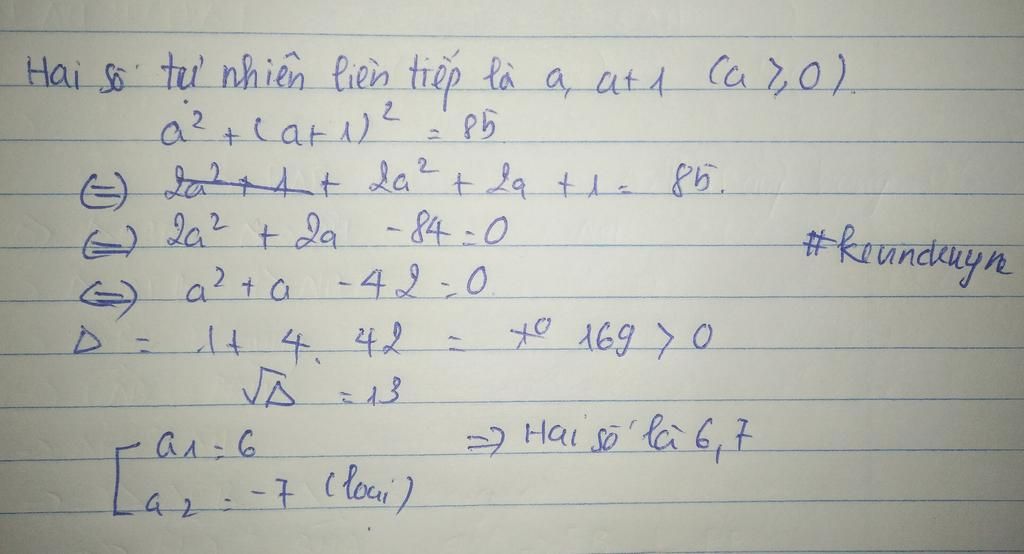 Hai số tự nhiên liên tiếp là a, a+1 (a ≥ 0).
a² + (a+1)² = 85
(=) 2a² + 1 + 2a² + 2a + 1 = 85.
(=) 2a² + 2a - 84 = 0
(=) a² + a - 42 = 0
Δ = 1 + 4. 42 = 169 > 0
√Δ = 13
a1 = 6
a2 = -7 (loại)
=> Hai số là 6, 7